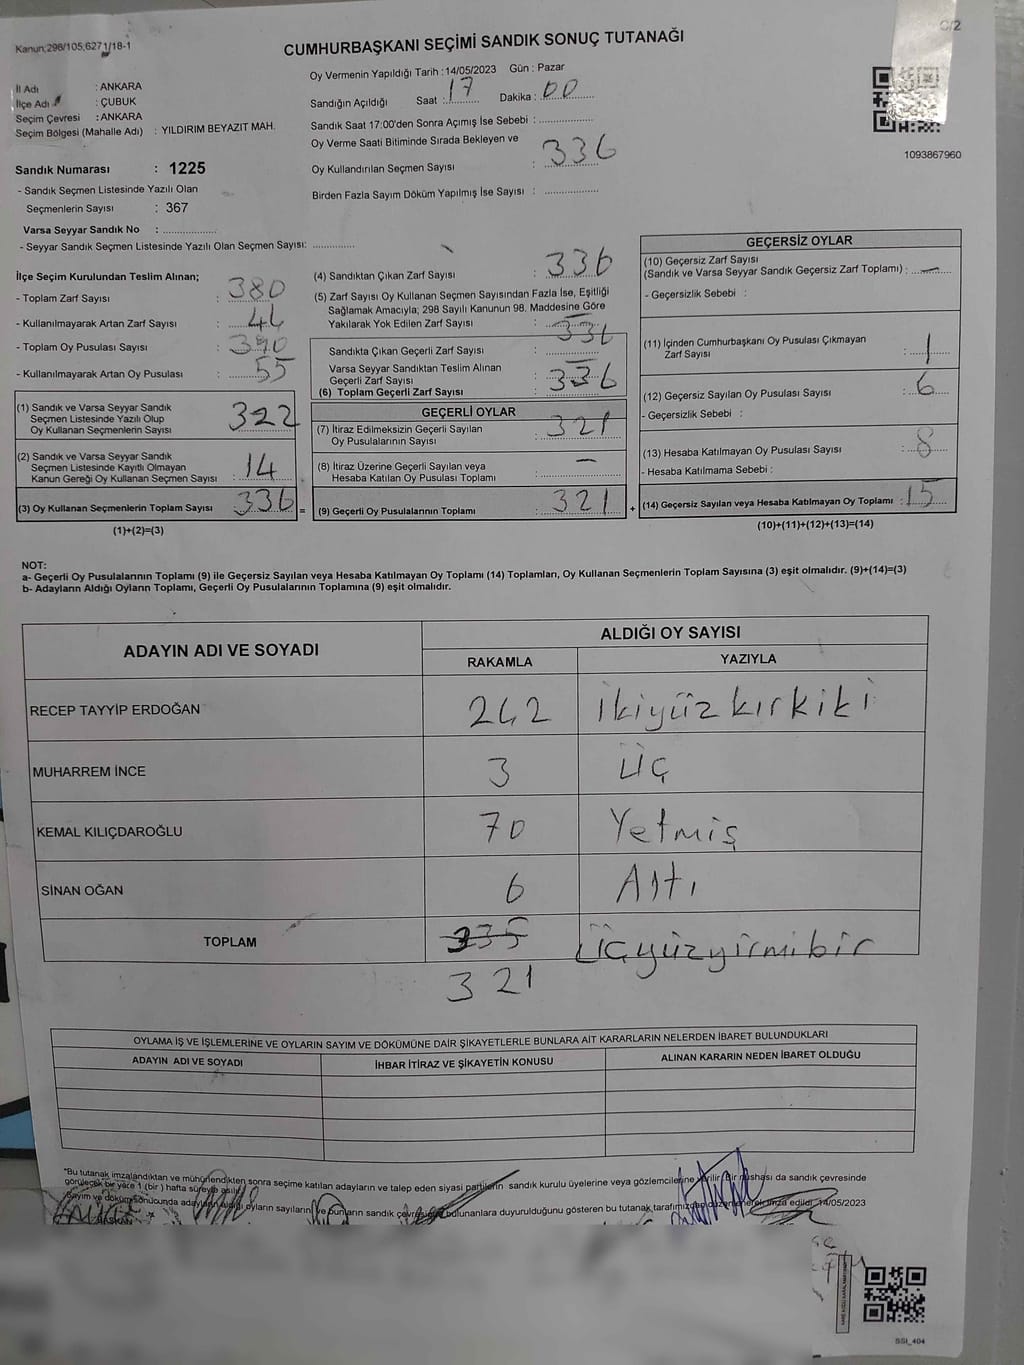 Kanun;298/105;6271/18-1
C/2
CUMHURBAŞKANI SEÇİMİ SANDIK SONUÇ TUTANAĞI
İl Adı : ANKARA
İlçe Adı : ÇUBUK
Seçim Çevresi : ANKARA
Seçim Bölgesi (Mahalle Adı) : YILDIRIM BEYAZIT MAH.
Oy Vermenin Yapıldığı Tarih : 14/05/2023 Gün : Pazar
Sandığın Açıldığı Saat : 17 Dakika : 00
Sandık Saat 17:00'den Sonra Açımış İse Sebebi :
Oy Verme Saati Bitiminde Sırada Bekleyen ve
Oy Kullandırılan Seçmen Sayısı : 336
Birden Fazla Sayım Döküm Yapılmış İse Sayısı :
1093867960
Sandık Numarası : 1225
- Sandık Seçmen Listesinde Yazılı Olan
Seçmenlerin Sayısı : 367
Varsa Seyyar Sandık No :
- Seyyar Sandık Seçmen Listesinde Yazılı Olan Seçmen Sayısı:
İlçe Seçim Kurulundan Teslim Alınan;
- Toplam Zarf Sayısı : 380
- Kullanılmayarak Artan Zarf Sayısı : 44
- Toplam Oy Pusulası Sayısı : 390
- Kullanılmayarak Artan Oy Pusulası : 55
(1) Sandık ve Varsa Seyyar Sandık
Seçmen Listesinde Yazılı Olup
Oy Kullanan Seçmenlerin Sayısı : 322
(2) Sandık ve Varsa Seyyar Sandık
Seçmen Listesinde Kayıtlı Olmayan
Kanun Gereği Oy Kullanan Seçmen Sayısı : 14
(3) Oy Kullanan Seçmenlerin Toplam Sayısı : 336 =
(1)+(2)=(3)
(4) Sandıktan Çıkan Zarf Sayısı : 336
(5) Zarf Sayısı Oy Kullanan Seçmen Sayısından Fazla İse, Eşitliği
Sağlamak Amacıyla; 298 Sayılı Kanunun 98. Maddesine Göre
Yakılarak Yok Edilen Zarf Sayısı : —
Sandıkta Çıkan Geçerli Zarf Sayısı : 336
Varsa Seyyar Sandıktan Teslim Alınan
Geçerli Zarf Sayısı : —
(6) Toplam Geçerli Zarf Sayısı : 336
GEÇERLİ OYLAR
(7) İtiraz Edilmeksizin Geçerli Sayılan
Oy Pusulalarının Sayısı : 321
(8) İtiraz Üzerine Geçerli Sayılan veya
Hesaba Katılan Oy Pusulası Toplamı : —
(9) Geçerli Oy Pusulalarının Toplamı : 321 +
GEÇERSİZ OYLAR
(10) Geçersiz Zarf Sayısı
(Sandık ve Varsa Seyyar Sandık Geçersiz Zarf Toplamı) : —
- Geçersizlik Sebebi :
(11) İçinden Cumhurbaşkanı Oy Pusulası Çıkmayan
Zarf Sayısı : 1
(12) Geçersiz Sayılan Oy Pusulası Sayısı : 6
- Geçersizlik Sebebi :
(13) Hesaba Katılmayan Oy Pusulası Sayısı : 8
- Hesaba Katılmama Sebebi :
(14) Geçersiz Sayılan veya Hesaba Katılmayan Oy Toplamı : 15
(10)+(11)+(12)+(13)=(14)
NOT:
a- Geçerli Oy Pusulalarının Toplamı (9) ile Geçersiz Sayılan veya Hesaba Katılmayan Oy Toplamı (14) Toplamları, Oy Kullanan Seçmenlerin Toplam Sayısına (3) eşit olmalıdır. (9)+(14)=(3)
b- Adayların Aldığı Oyların Toplamı, Geçerli Oy Pusulalarının Toplamına (9) eşit olmalıdır.
ADAYIN ADI VE SOYADI
ALDIĞI OY SAYISI
RAKAMLA YAZIYLA
RECEP TAYYİP ERDOĞAN 242 İkiyüzkırkiki
MUHARREM İNCE 3 Üç
KEMAL KILIÇDAROĞLU 70 Yetmiş
SİNAN OĞAN 6 Altı
TOPLAM 335 Üçyüzyirmibir
321
OYLAMA İŞ VE İŞLEMLERİNE VE OYLARIN SAYIM VE DÖKÜMÜNE DAİR ŞİKAYETLERLE BUNLARA AİT KARARLARIN NELERDEN İBARET BULUNDUKLARI
ADAYIN ADI VE SOYADI İHBAR İTİRAZ VE ŞİKAYETİN KONUSU ALINAN KARARIN NEDEN İBARET OLDUĞU
*Bu tutanak imzalandıktan ve mühürlendikten sonra seçime katılan adayların ve talep eden siyasi partilerin sandık kurulu üyelerine veya gözlemcilerine verilir. Bir nushası da sandık çevresinde
görülecek bir yere 1 (bir) hafta süreyle asılır.
Sayım ve döküm sonucunda adayların aldığı oyların sayıların ve bunların sandık çevresinde bulunanlara duyurulduğunu gösteren bu tutanak tarafımızdan düzenlenerek imza edildi. 14/05/2023
BAŞKAN
SSI_404